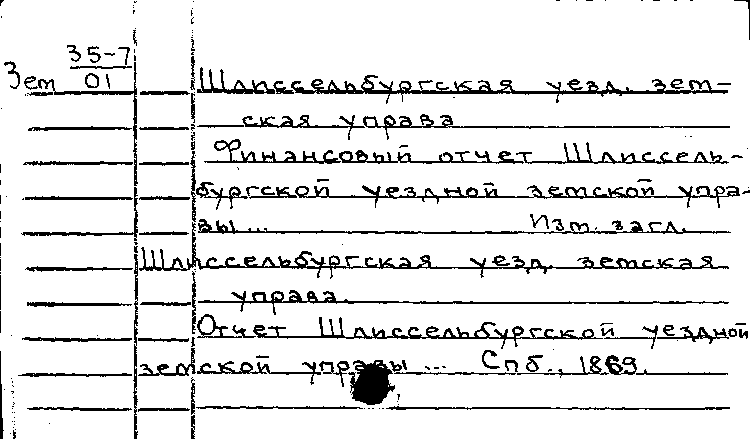 Зем 35-7/01
Шлиссельбургская уезд. зем-
ская управа
Финансовый отчет Шлиссель-
бургской уездной земской упра-
вы... Изм. загл.
Шлиссельбургская уезд. земская
управа.
Отчет Шлиссельбургской уездной
земской управы ... Спб., 1869.